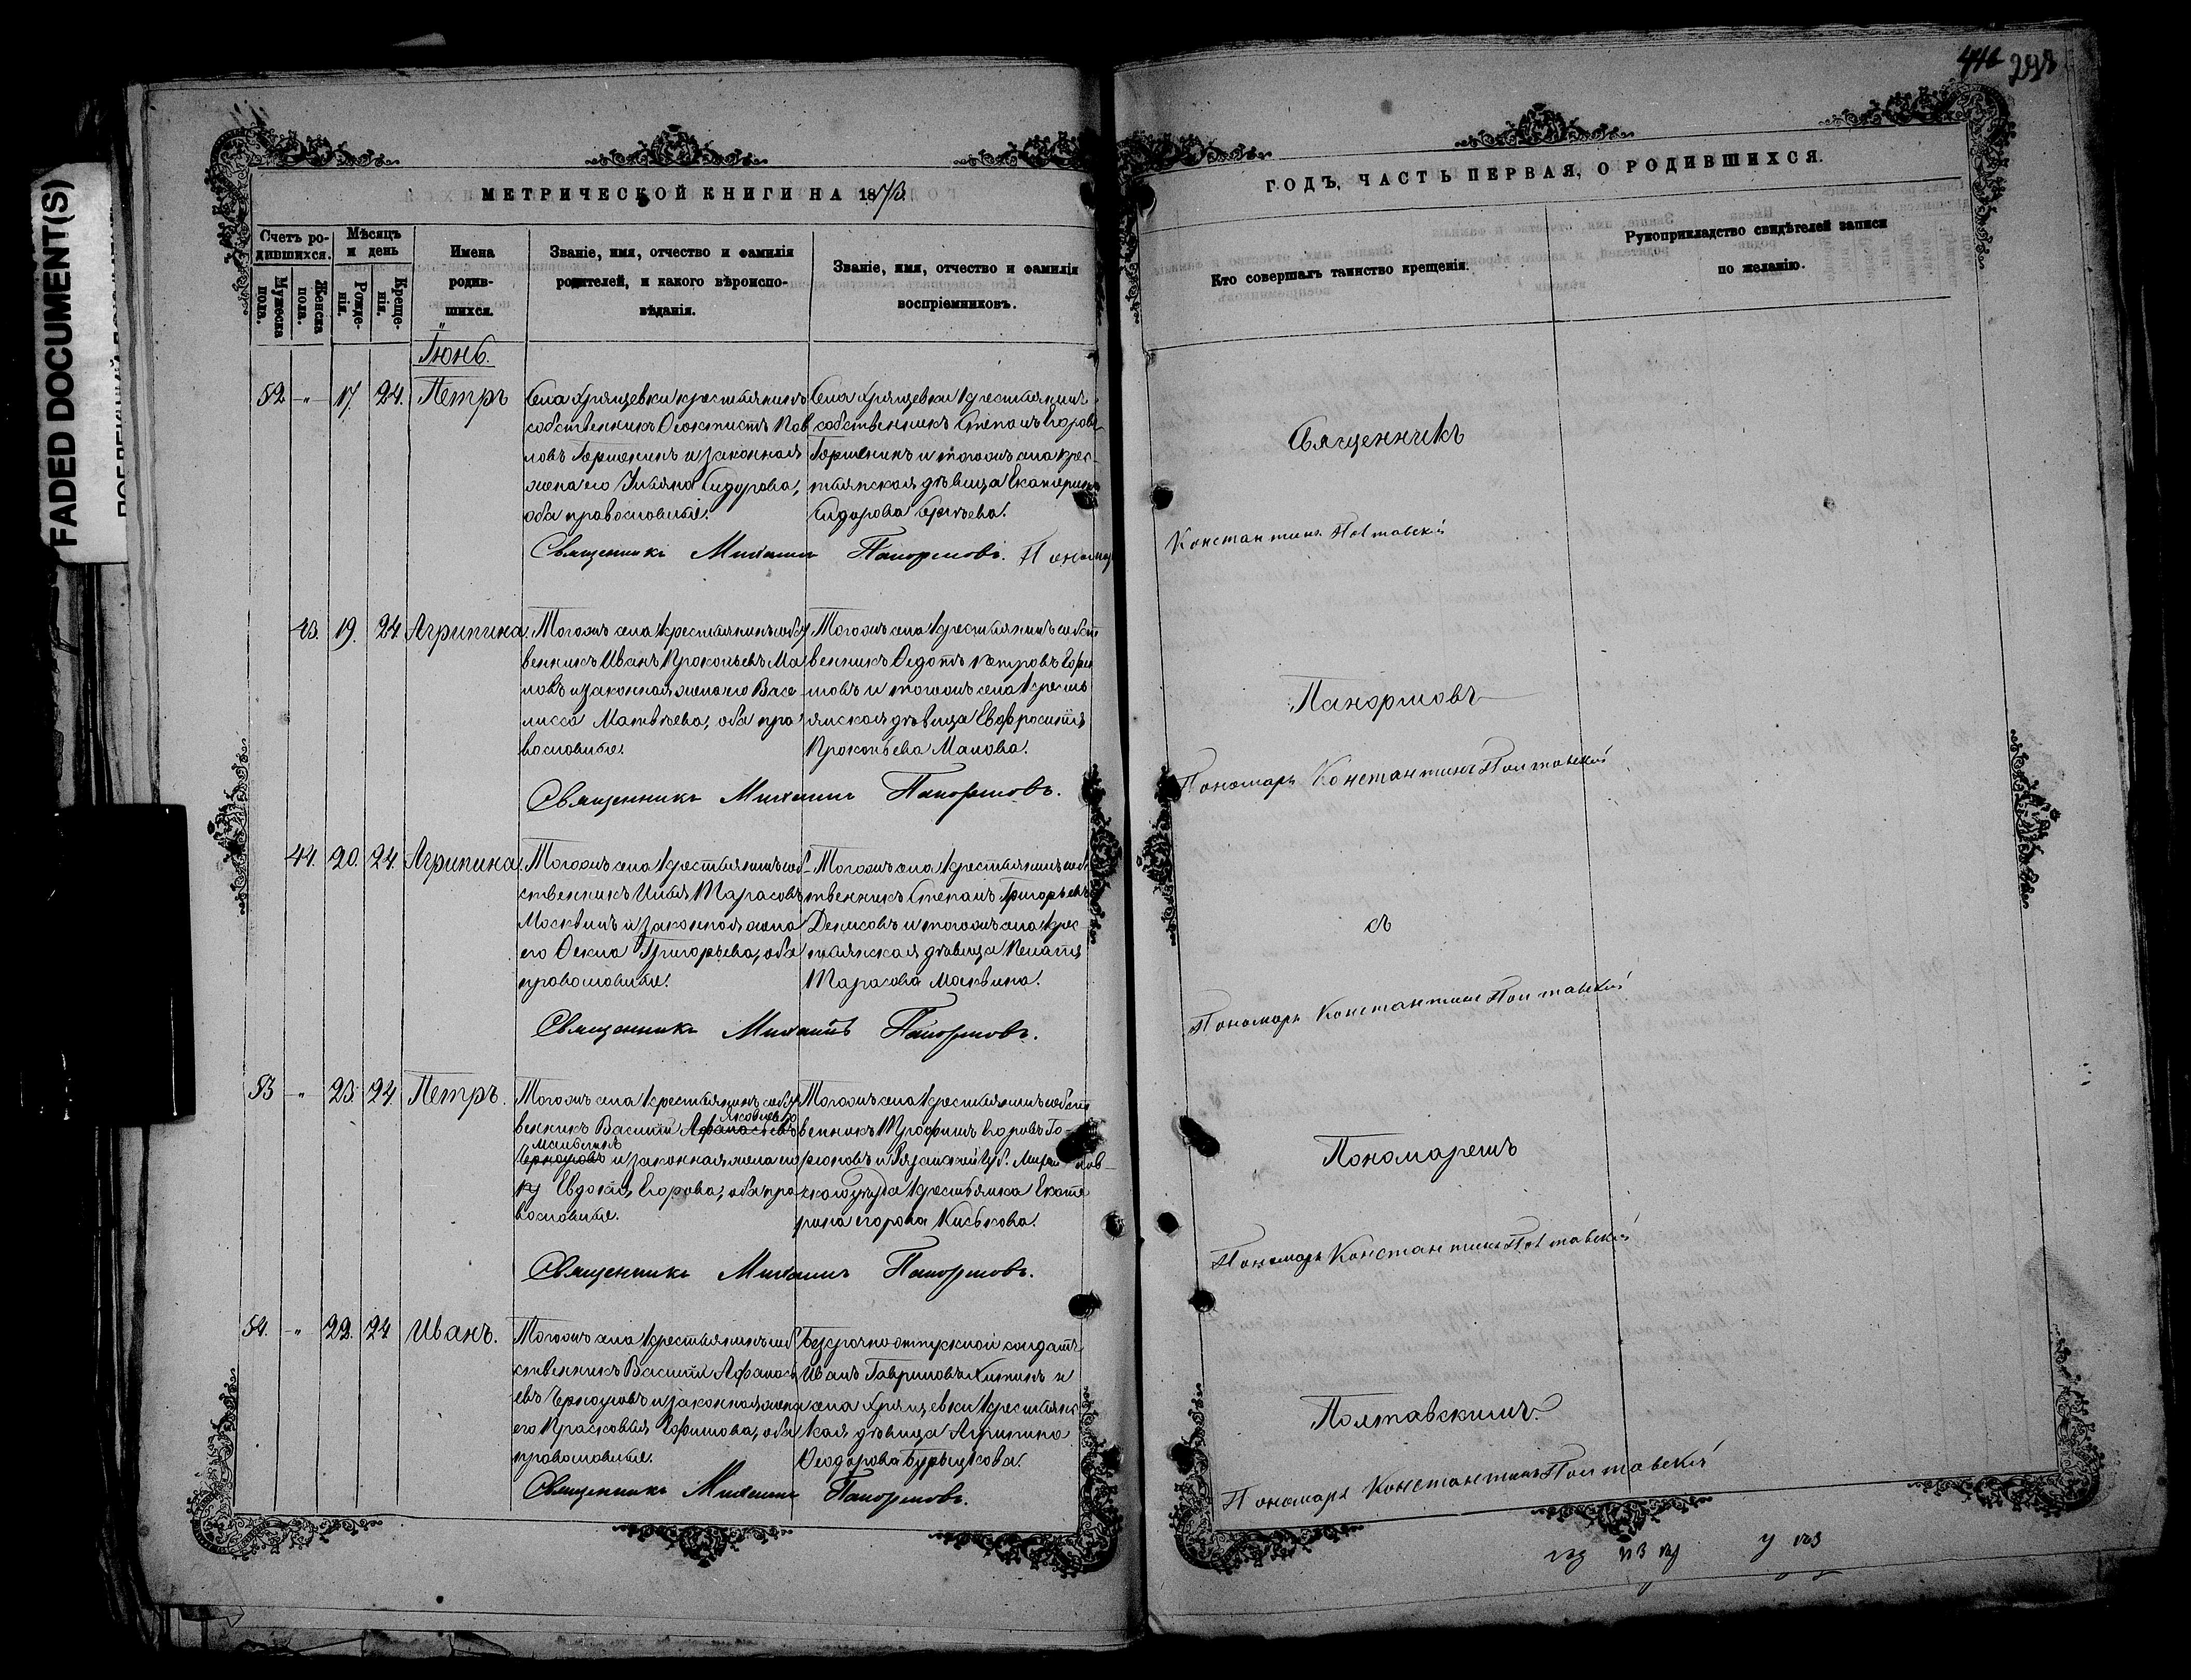 FADED DOCUMENT(S)
446
МЕТРИЧЕСКОЙ КНИГИ НА 1873
Счетъ ро-
дившихся.
Мужеска пола.
Женска пола.
Мѣсяцъ
и день
Рожде-
нія.
Креще-
нія.
Имена
родив-
шихся.
Званіе, имя, отчество и фамилія
родителей, и какого вѣроиспо-
вѣданія.
Званіе, имя, отчество и фамилія
воспріемниковъ.
Іюнь.
52 - " - 17. 24. Петръ
Села Хрящевки крестьянинъ
собственникъ Ѳеоктистъ Пав
ловъ Горшенинъ и законная
жена его Ульяна Сидорова,
оба православные.
Села Хрящевки крестьянинъ
собственникъ Степанъ Егоровъ
Горшенинъ и тогожъ села крес-
тьянская дѣвица Екатерина
Сидорова
Священникъ Михаилъ Панормовъ. Пономарь
43. 19. 24 Агрипина.
Тогожъ села крестьянинъ собст
венникъ Иванъ Прокопьевъ Ма
ловъ и законная жена его Васи
лисса Матвѣева, оба пра
вославные.
Тогожъ села крестьянинъ собст
венникъ Ѳедотъ Петровъ
и тогожъ села кресть
янская дѣвица Евфросинія
Прокопьева Малова.
Священникъ Михаилъ Панормовъ.
44. 20. 24 Агрипина.
Тогожъ села крестьянинъ соб-
ственникъ Илья Тарасовъ
Москвинъ и законная жена
его Ѳекла Григорьева, оба
православные.
Тогожъ села крестьянинъ собс
твенникъ Степанъ Григорьевъ
Денисовъ и тогожъ села крес-
тьянская дѣвица Пелагія
Тарасова Москвина.
Священникъ Михаилъ Панормовъ.
53 - " 23. 24. Петръ.
Тогожъ села крестьянинъ собст
венникъ Василій Афанасьевъ
Черноуховъ и законная жена его
Евдокія Егорова, оба пра
вославные.
Тогожъ села крестьянинъ собст
венникъ Трофимъ Егоровъ
и Рязанской Губ. Михайлов-
скаго уѣзда крестьянка Екате
рина Егорова Киськова.
Священникъ Михаилъ Панормовъ.
54. - " 22. 24 Иванъ.
Тогожъ села крестьянинъ соб
ственникъ Василій Афанась
евъ Черноуховъ и законная жена
его Прасковья Ефимова, оба
православные.
Безсрочноотпускной солдатъ
Иванъ Гавриловъ Китинъ и
села Хрящевки крестьянс
кая дѣвица Агрипина
Ѳеодорова
Священникъ Михаилъ Панормовъ.
ГОДЪ, ЧАСТЬ ПЕРВАЯ, О РОДИВШИХСЯ.
Кто совершалъ таинство крещенія.
Рукоприкладство свидѣтелей записи
по желанію.
Священникъ
Константинъ Полтавскій
Панормовъ
Пономарь Константинъ Полтавскій
съ
Пономарь Константинъ Полтавскій
Пономаремъ
Пономарь Константинъ Полтавскій
Полтавскимъ.
Пономарь Константинъ Полтавскій